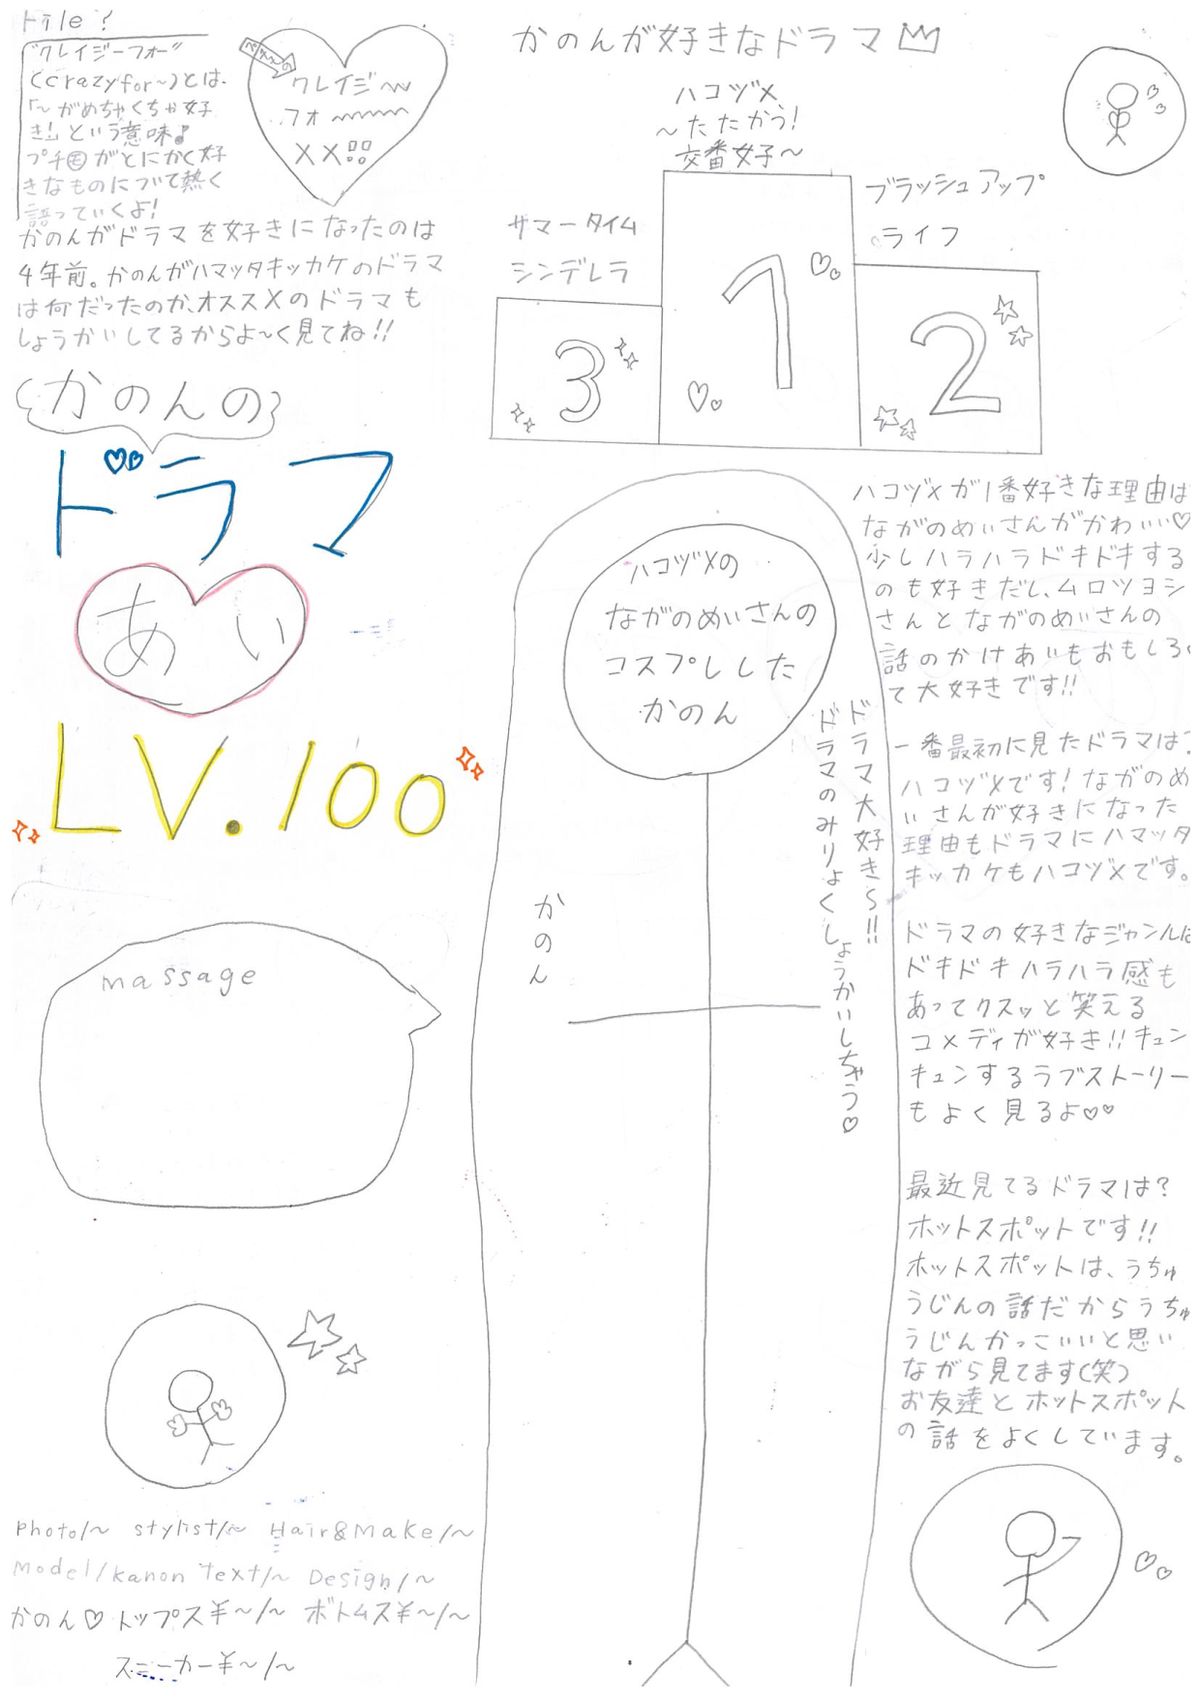 トile?
"クレイジーフォー"
(crazy for~)とは、
「~がめちゃくちゃ好
き!」という意味♪
プチモがとにかく好
きなものについて熱く
語っていくよ!
クレイジ~
フォ~
××!!
かのんがドラマを好きになったのは
4年前。かのんがハマッタキッカケのドラマ
は何だったのか、オススメのドラマも
しょうかいしてるからよ~く見てね!!
かのんの
ドラマ
あい
LV.100
massage
かのんが好きなドラマ
ハコヅメ
~たたかう!
交番女子~
ブラッシュアップ
ライフ
サマータイム
シンデレラ
1
2
3
ハコヅメの
ながのめいさんの
コスプレした
かのん
ドラマ大好き~!!
ドラマのみりょくしょうかいしちゃう♡
かのん
ハコヅメが1番好きな理由は
ながのめいさんがかわいい♡
少しハラハラドキドキする
のも好きだし、ムロツヨシ
さんとながのめいさんの
話のかけあいもおもしろく
て大好きです!!
一番最初に見たドラマは?
ハコヅメです!ながのめ
いさんが好きになった
理由もドラマにハマッタ
キッカケもハコヅメです。
ドラマの好きなジャンルは
ドキドキハラハラ感も
あってクスッと笑える
コメディが好き!!キュン
キュンするラブストーリー
もよく見るよ♡♡
最近見てるドラマは?
ホットスポットです!!
ホットスポットは、うちゅ
うじんの話だからうちゅ
うじんかっこいいと思い
ながら見てます(笑)
お友達とホットスポット
の話をよくしています。
Photo/~ stylist/~ Hair&Make/~
Model/kanon Text/~ Design/~
かのん♡トップス¥~/~ ボトムス¥~/~
スニーカー¥~/~